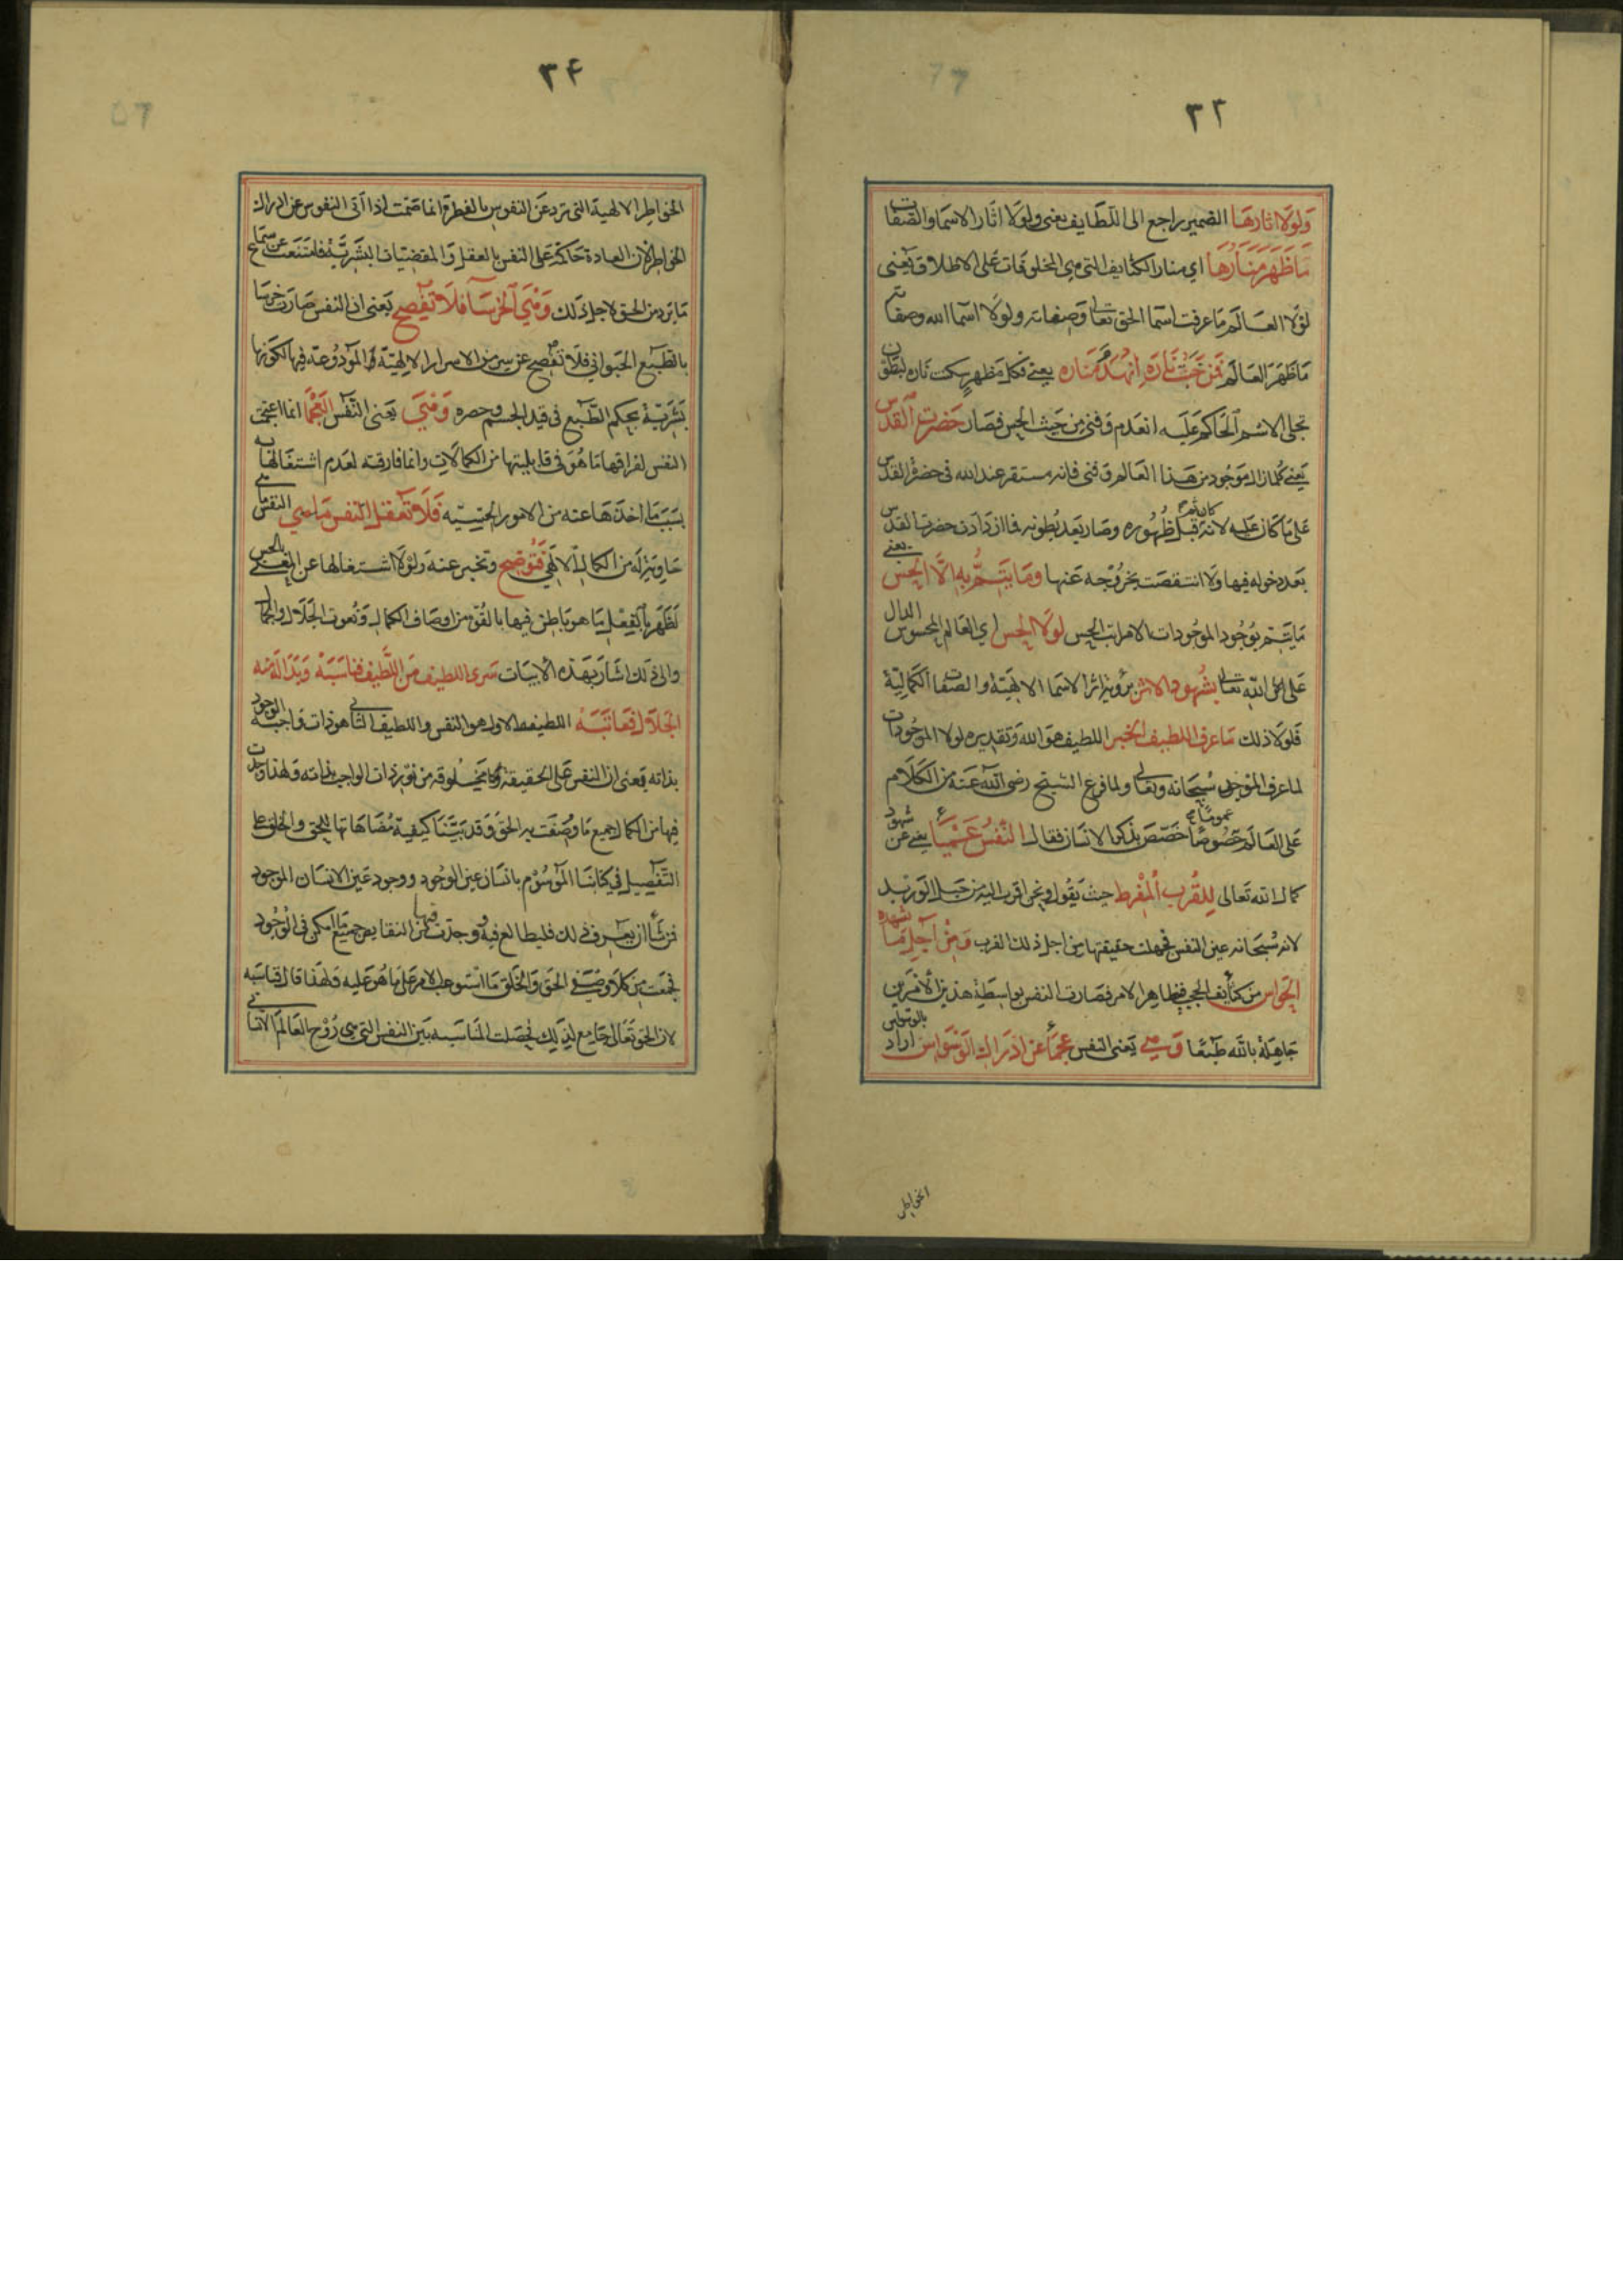 ٣٣
ولولا اثارها الضمير راجع الى اللطايف يعنى ولولا اثار الاسما والصفات
ما ظهر منارها اي منار الكثايف التي هي المخلوقات على الاطلاق يعنى
لولا العالم ما عرفت اسما الحق تعالى وصفاته ولولا اسما الله وصفاته
ما ظهر العالم فمن خبت ناره انهدم مناره يعني فكل مظهر سكت ناره لبطون
تجلى الاسم الحاكم عليه انعدم وفنى من حيث الحس فصار حضرت القدس
يعني كلما زال موجود من هذا العالم وفنى فانه مستقر عند الله في حضرة القدس
على ما كان عليه لانه كان ثمه قبل ظهوره وصار بعد بطونه فما ازدادت حضرت القدس
بعد دخوله فيها ولا انتقصت بخروجه عنها وما يتم به الا الحس يعني
ما يتم بوجود الموجودات الا مراتب الحس لولا الحس اي العالم المحسوس الدال
على الله تعالى بشهود الاثر برؤية اثر الاسما الالهية والصفات الكمالية
فلولا ذلك ما عرف اللطيف الخبر اللطيف هو الله وتقديره لولا الموجودات
لما عرف الموجد سبحانه وتعالى ولما فرغ الشيخ رضى الله عنه من الكلام
على العالم عموما خصص بذكر الانسان فقال النفس عميا يعني عن شهود
كمال الله تعالى للقرب المفرط حيث يقول ونحن اقرب اليه من حبل الوريد
لانه سبحانه عين النفس فجهلت حقيقتها من اجل ذلك القرب ومن اجل ما تشهده
الحواس من كثايف الحجب في ظاهر الامر فصارت النفس بواسطة هذين الامرين
جاهلة بالله طبعا وهي يعنى النفس عجما عن ادراك الوسواس اراد بالوسواس
الخواطر
٣٤
الخواطر الالهية التي ترد عن النفوس بالفطرة انما صمت اذا اتى النفوس عن ادراك
الخواطر لان العادة حاكمة على النفس بالعقل والمقتضيات البشرية فامتنعت عن سماع
ما يرد من الحق لاجل ذلك وهي الخرسا فلا تفصح يعنى ان النفس صارت خرسا
بالطبع الحيواني فلا تفصح عن سر من الاسرار الالهية المودوعة فيها لكونها
بشرية بحكم الطبع في قيد الجسم وحصره وهي يعنى النفس العجما انما اعجمت
النفس لفراقها ما هو في قابليتها من الكمالات وانما فارقته لعدم اشتغالها به
بسبب ما اخذها عنه من الامور الحسيه فلا تعقل النفس ما هي النفس
حاوية له من الكمال الالهي فتوضح وتخبر عنه ولولا اشتغالها عن بالحس
لظهر بالفعل ما هو باطن فيها بالقوة من اوصاف الكمال ونعوت الجلال والجمال
والى ذلك اشار بهذه الابيات سرى اللطيف من اللطيف فناسبه وبدا له منه
الجلال فعاتبه اللطيف الاول هو النفس واللطيف الثاني هو ذات واجب الوجود
بذاته يعنى ان النفس على الحقيقة مخلوقه من نور ذات الواجب بذاته ولهذا وجدت
فيها من الكمال جميع ما وصفت به الحق وقد بينا كيفية مضاهاتها للحق والخلق على
التفصيل في كتابنا الموسوم بانسان عين الوجود ووجود عين الانسان الموجود
فمن شا ان يعرف ذلك فليطالع فيه وجدت فيها من النقايص جميع ما امكن في الوجود
فجمعت من كلا وصفي الحق والخلق ما استوعب الامر على ما هو عليه ولهذا قال فناسبه
لان الحق تعالى جامع لذلك فحصلت المناسبه بين النفس التي هي روح العالم الانساني